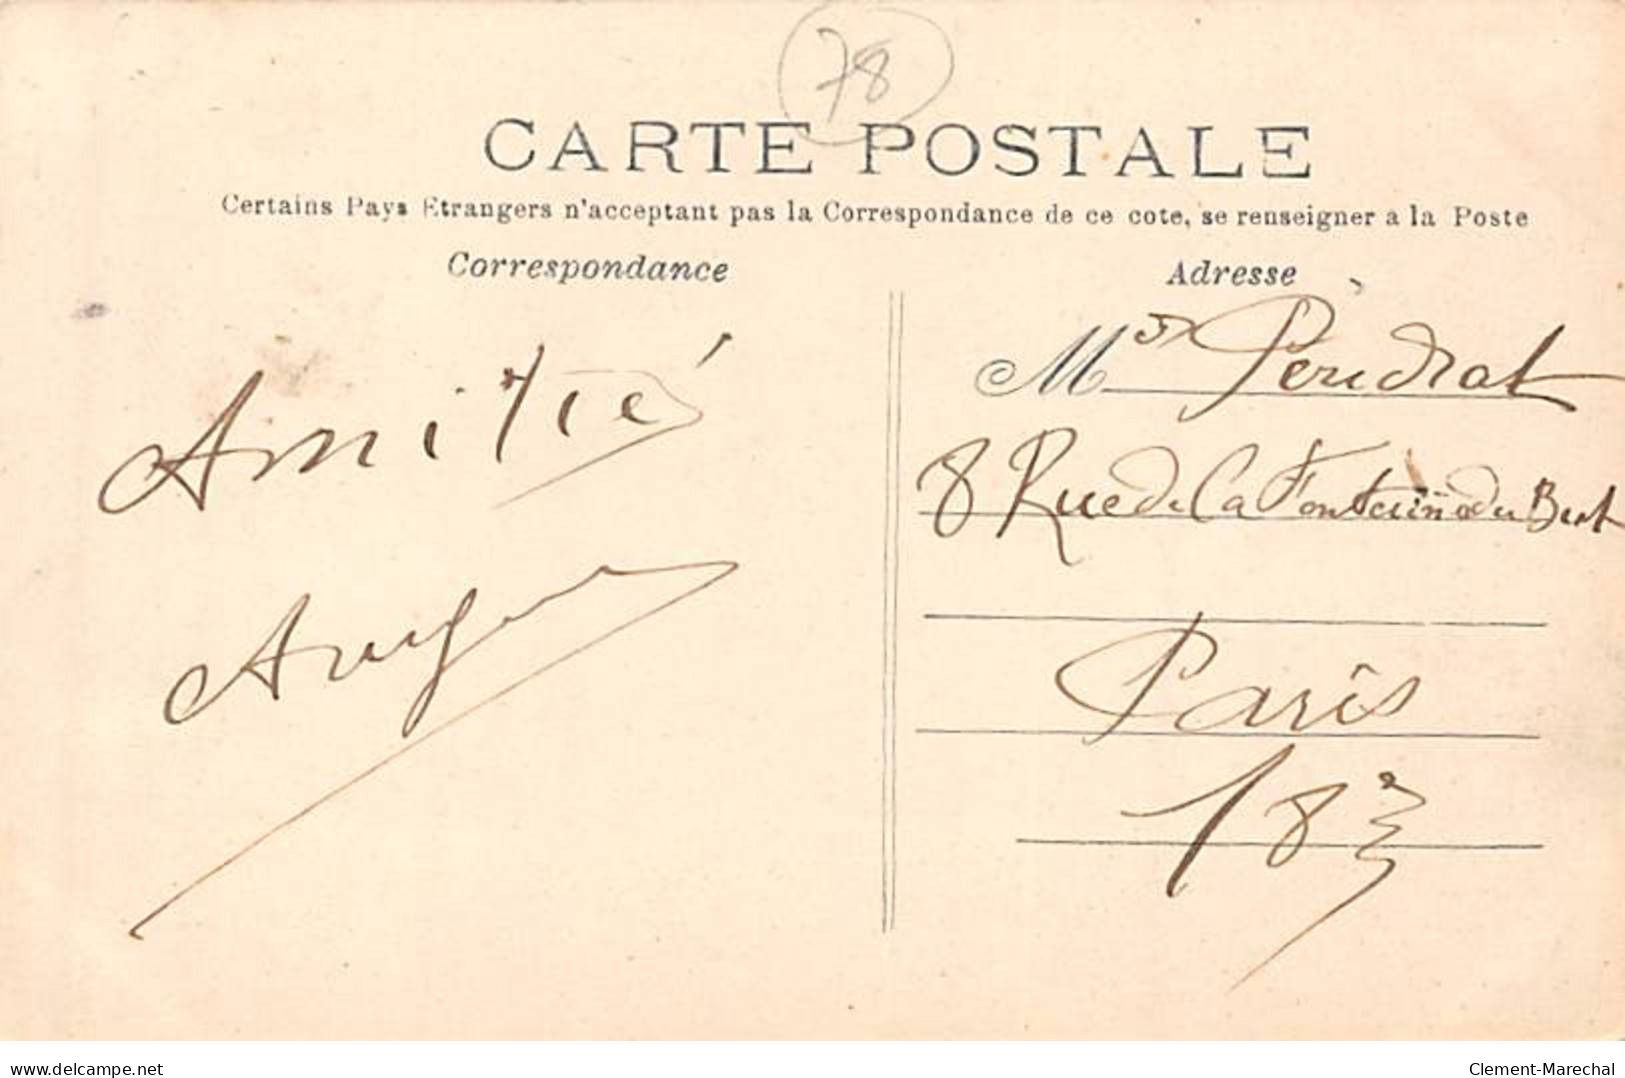 78
CARTE POSTALE
Certains Pays Etrangers n'acceptant pas la Correspondance de ce cote, se renseigner a la Poste
Correspondance
Adresse
Amitié
Mr Péridrat
8 Rue de La Fontaine du But
Paris
18e
delcampe.net
Clement-Marechal